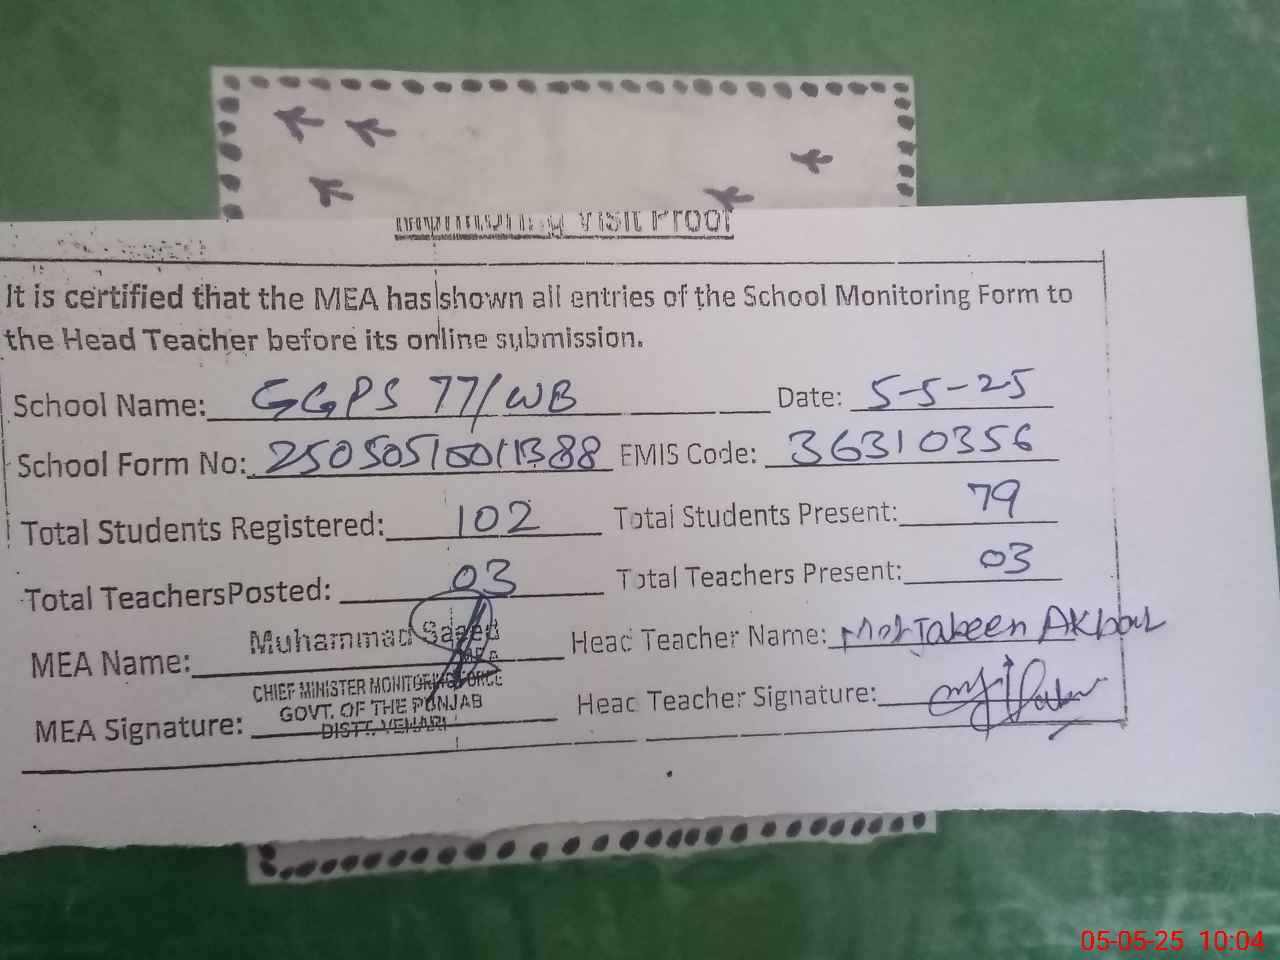 Visit Proof
It is certified that the MEA has shown all entries of the School Monitoring Form to
the Head Teacher before its online submission.
School Name: GGPS 77/WB Date: 5-5-25
School Form No: EMIS Code: 36310356
Total Students Registered: 102 Total Students Present: 79
Total TeachersPosted: 03 Total Teachers Present: 03
MEA Name: Muhammad Saeed Head Teacher Name: Akbar
M.E.A
CHIEF MINISTER MONITORING FORCE
GOVT. OF THE PUNJAB
DISTT. VEHARI
MEA Signature: Head Teacher Signature:
05-05-25 10:04